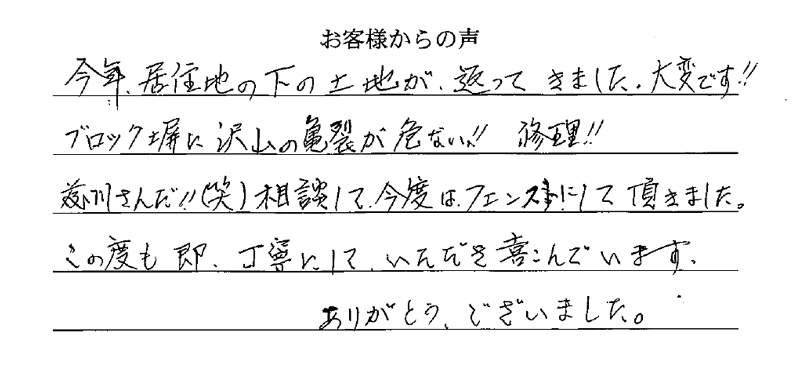 お客様からの声
今年、居住地の下の土地が、返って きました。大変です!!
ブロック塀に沢山の亀裂が危ない!! 修理!!
さんだ!!(笑)相談して、今度は、フェンスにして頂きました。
この度も即、丁寧にして、いただき喜こんでいます。
ありがとう、ございました。